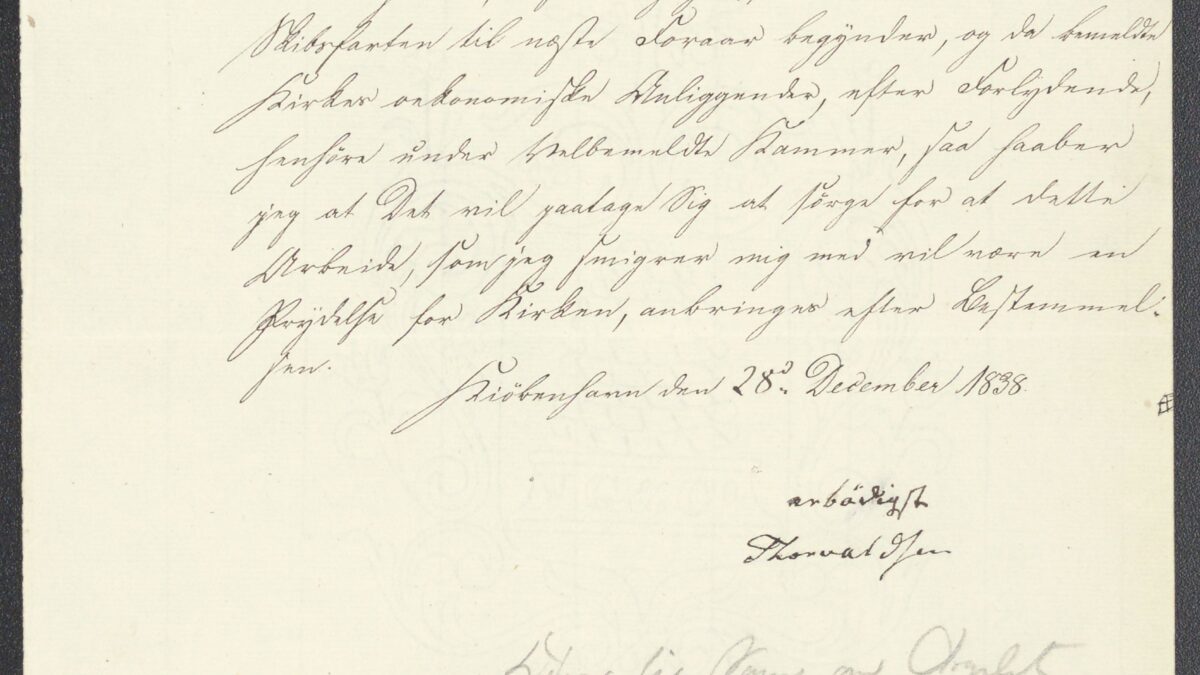 Skibsfarten til næste Foraar begynder, og da bemeldte
Kirkes oekonomiske Anliggender, efter Forlydende,
henhöre under Velbemeldte Kammer, saa haaber
jeg at Det vil paatage Sig at sörge for at dette
Arbeide, som jeg smigrer mig med vil være en
Prydelse for Kirken, anbringes efter Bestemmel-
sen.
Kiöbenhavn den 28d. December 1838.
erbödigst
Thorvaldsen